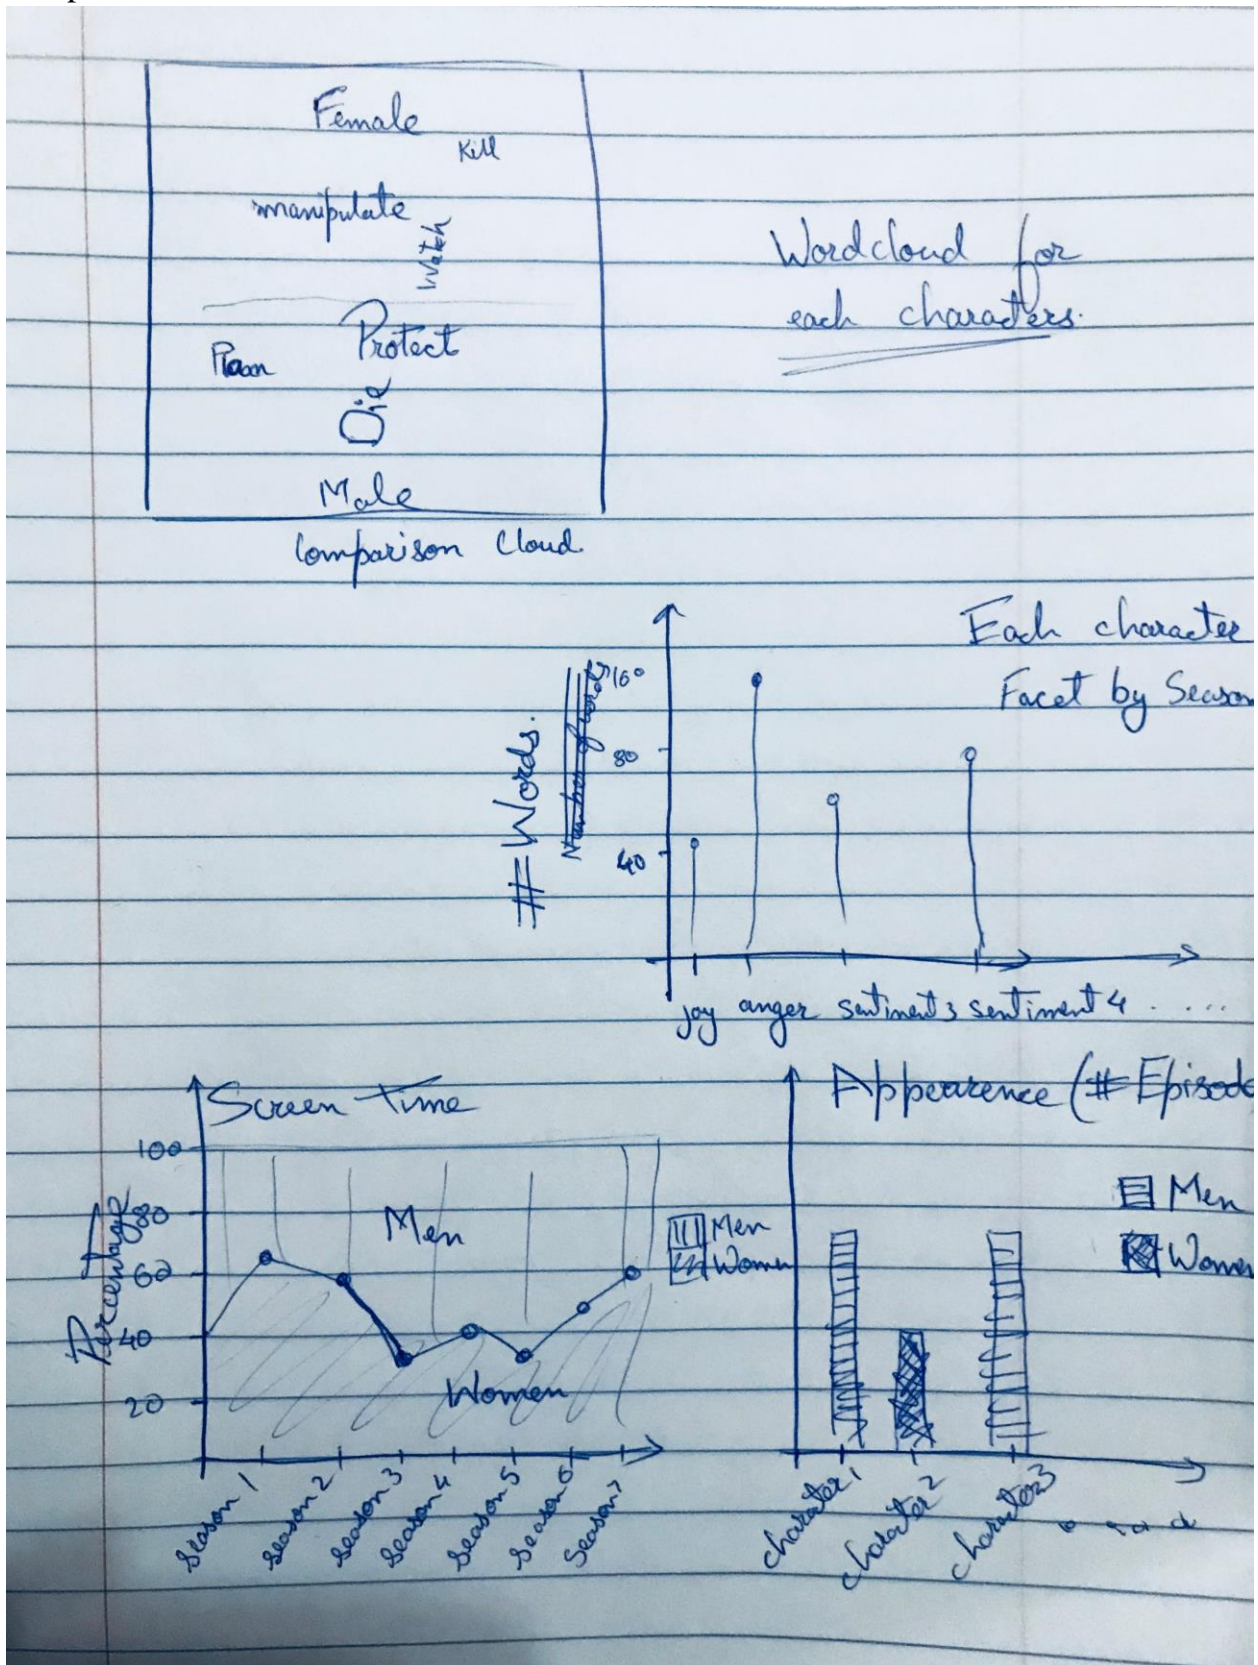 Female
Kill
manipulate
Watch
Protect
Plan
Die
Male
Comparison Cloud.
Wordcloud for
each characters.
Each character
Facet by Season
#Words.
Number of words
160
80
40
joy anger sentiment 3 sentiment 4 . . . . .
Screen Time
Percentage
100
80
60
40
20
Men
Women
Men
Women
Season 1
Season 2
Season 3
Season 4
Season 5
Season 6
Season 7
Appearence (#Episode
Men
Women
character 1
character 2
character 3